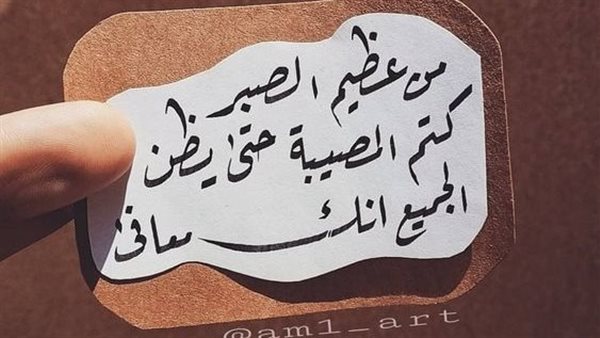 من عظيم الصبر
كتم المصيبة حتى يظن
الجميع انك معافى
@am1_art